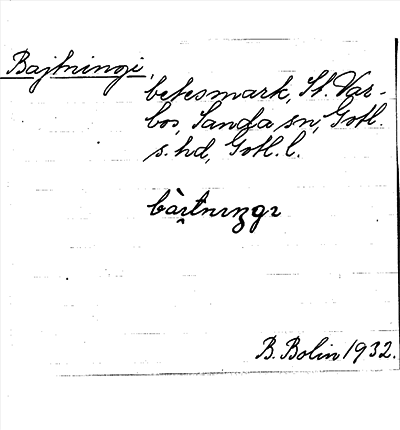 Bajtningi,
betesmark, St. Var-
bos, Sanda sn, Gotl.
s. hd, Gotl. l.
B. Bolin 1932.